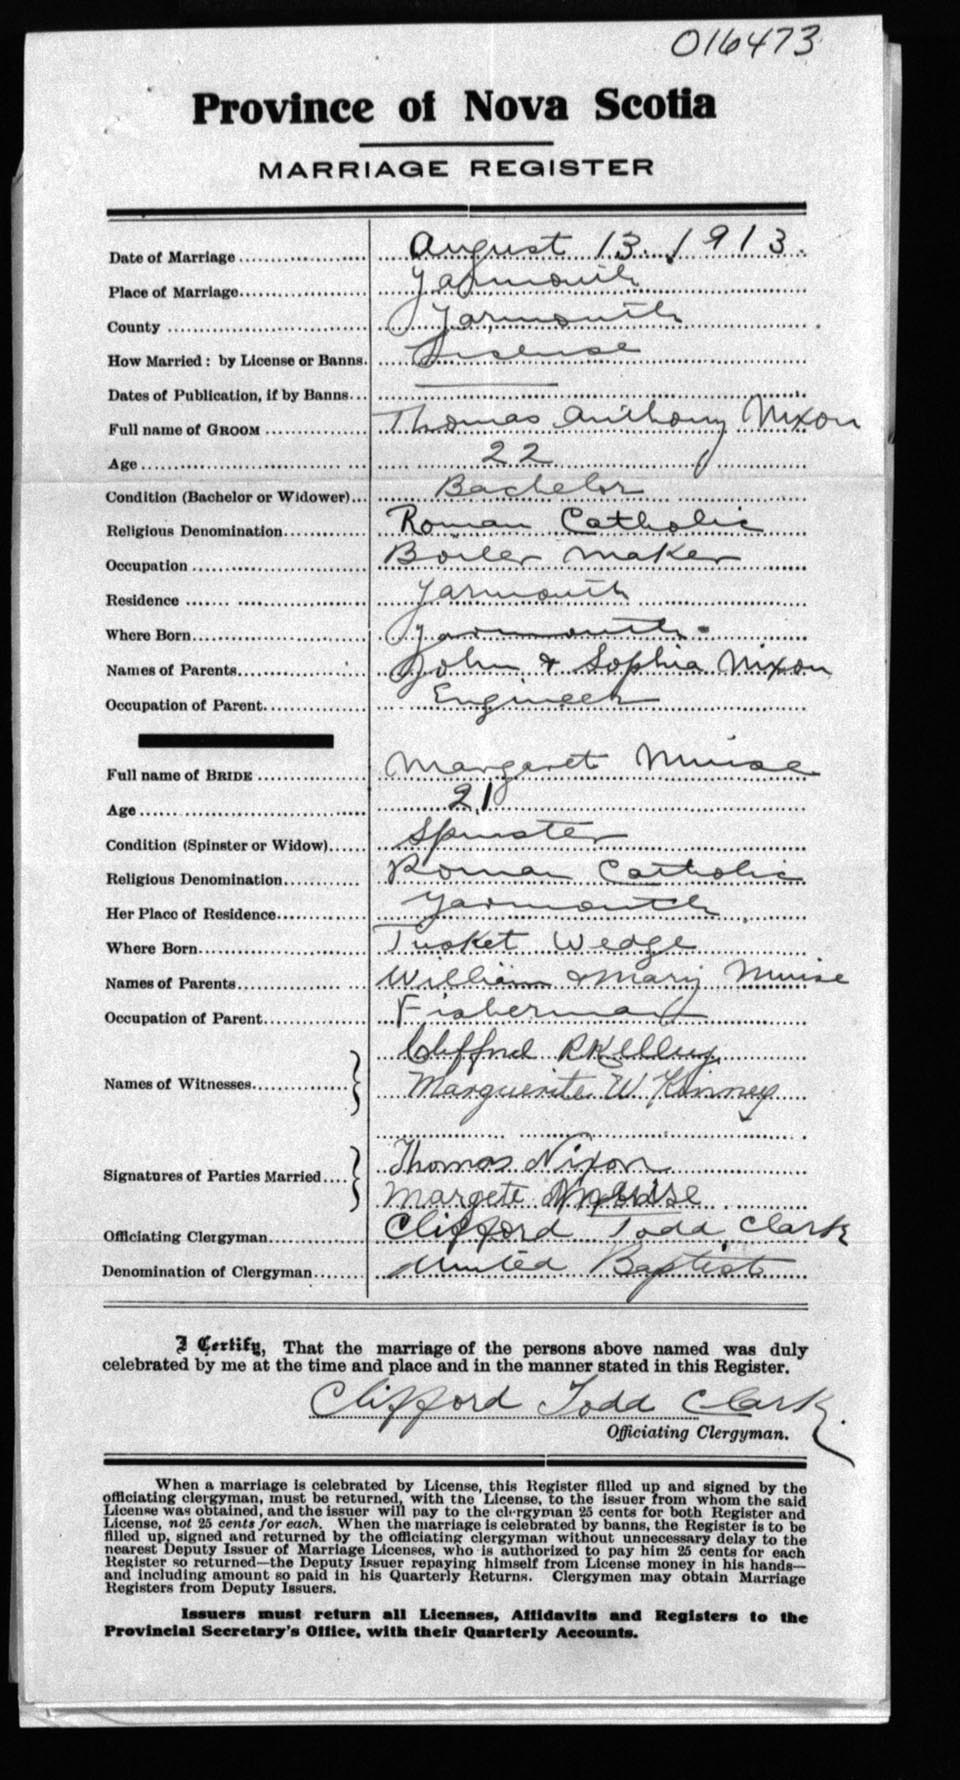 016473
Province of Nova Scotia
MARRIAGE REGISTER
Date of Marriage August 13, 1913.
Place of Marriage Yarmouth
County Yarmouth
How Married: by License or Banns. License
Dates of Publication, if by Banns
Full name of GROOM Thomas Anthony Nixon
Age 22
Condition (Bachelor or Widower) Bachelor
Religious Denomination Roman Catholic
Occupation Boiler maker
Residence Yarmouth
Where Born Yarmouth.
Names of Parents John & Sophia Nixon
Occupation of Parent Engineer
Full name of BRIDE Margaret Muise
Age 21
Condition (Spinster or Widow) Spinster
Religious Denomination Roman Catholic
Her Place of Residence Yarmouth
Where Born Tusket Wedge
Names of Parents William & Mary Muise
Occupation of Parent Fisherman
Clifford R Kelley
Names of Witnesses Marguerite W. Kinney
Thomas Nixon
Signatures of Parties Married
Margete Muise
Officiating Clergyman Clifford Todd Clark
Denomination of Clergyman United Baptist
I Certify, That the marriage of the persons above named was duly
celebrated by me at the time and place and in the manner stated in this Register.
Clifford Todd Clark.
Officiating Clergyman.
When a marriage is celebrated by License, this Register filled up and signed by the
officiating clergyman, must be returned, with the License, to the issuer from whom the said
License was obtained, and the issuer will pay to the clergyman 25 cents for both Register and
License, not 25 cents for each. When the marriage is celebrated by banns, the Register is to be
filled up, signed and returned by the officiating clergyman without unnecessary delay to the
nearest Deputy Issuer of Marriage Licenses, who is authorized to pay him 25 cents for each
Register so returned—the Deputy Issuer repaying himself from License money in his hands—
and including amount so paid in his Quarterly Returns. Clergymen may obtain Marriage
Registers from Deputy Issuers.
Issuers must return all Licenses, Affidavits and Registers to the
Provincial Secretary's Office, with their Quarterly Accounts.